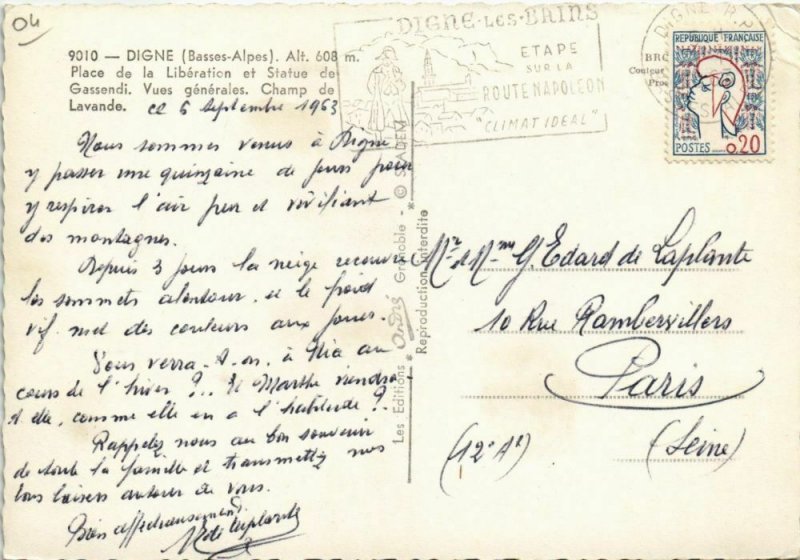 04
9010 — DIGNE (Basses-Alpes). Alt. 608 m.
Place de la Libération et Statue de
Gassendi. Vues générales. Champ de
Lavande.
ce 5 Septembre 1963
Nous sommes venus à Digne
y passer une quinzaine de jours pour
y respirer l'air pur et vivifiant
des montagnes.
Depuis 3 jours la neige recouvre
les sommets alentour, et le froid
vif met des couleurs aux joues.
Vous verra-t-on à Nice au
cours de l'hiver ?.. Et Marthe viendra-
t-elle, comme elle en a l'habitude ?..
Rappelez nous au bon souvenir
de toute la famille et transmettez nos
bons baisers autour de vous.
Bien affectueusement
de Laplante
Les Editions "André" Grenoble - © SPADEM
Reproduction interdite
DIGNE-LES-BAINS
ETAPE
SUR LA
ROUTE NAPOLEON
"CLIMAT IDEAL"
DIGNE R.P.
BRO
Couleur
REPUBLIQUE FRANÇAISE
POSTES 0,20
Mr et Mme G. Edard de Laplante
10 Rue Rambervillers
Paris
(12e Ar)
(Seine)